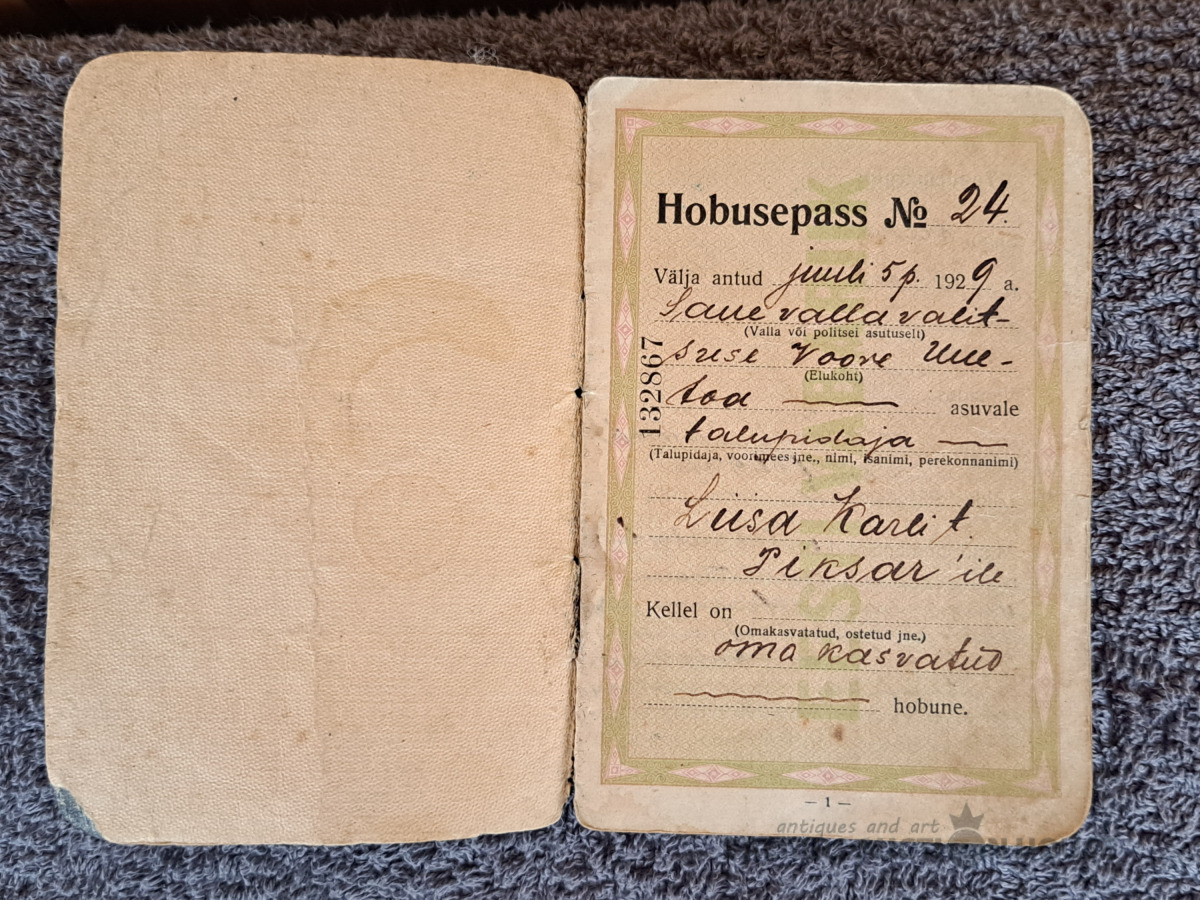 Hobusepass № 24.
Välja antud juuli 5 p. 1929 a.
Saue vallavalit-
(Valla või politsei asutuselt)
suse Voore Uue-
(Elukoht)
toa asuvale
talupidaja
(Talupidaja, voorimees jne., nimi, isanimi, perekonnanimi)
Liisa Karli t.
Piksar'ile
Kellel on
(Omakasvatatud, ostetud jne.)
oma kasvatud
hobune.
132867
EESTI VABARIIK
— 1 —
antiques and art